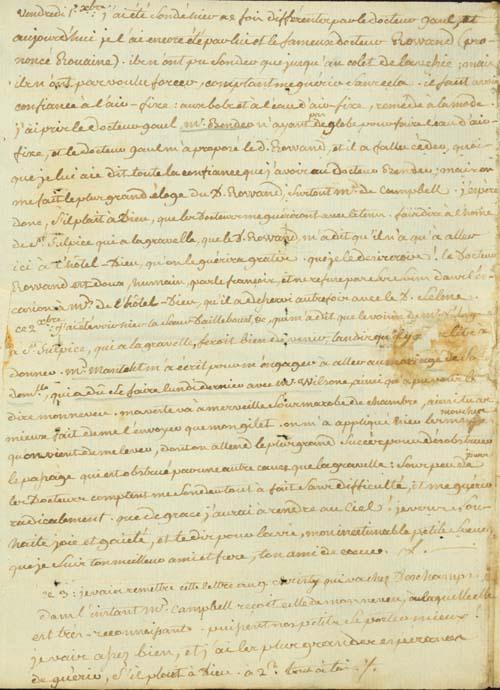 vendredi 1er Xbre j'ai été sondé hier de foir différenter par le docteur Gaul, et
aujourd'hui je l'ai encore été par lui et le fameux docteur Rowand (pro=
noncé Rouaine). ils n'ont pu sonder que jusqu'au colet de la vessie; mais
ils n'ont pas voulu forcer, comptant me guérir sans cela. il faut avoir
confiance à l'air-fixe: aux bols et à l'eau d'air-fixe, remède à la mode.
j'ai pris le docteur Gaul, n'ayant de globe pour faire l'eau d'air-
fixe, et le docteur Gaul m'a proposé le d. Rowand, et il a fallu céder, quoi-
que je lui aie dit toute la confiance que j'avois au docteur
on me fait le plus grand éloge du D. Rowand, surtout Mr. de Campbell. j'espere
donc, s'il plait à Dieu, que les Docteurs me guériront avec le tems. fais dire à l'home
de St. Sulpice qui a la gravelle, que le D. Rowand m'a dit qu'il n'a qu'à aller
ici à l'hôtel-Dieu, qu'on le guérira gratis. que je le désirerois! le Docteur
Rowand est doux, humain, parle françois, et ne refuse pas ses soins dans l'oc-
casion à Mrs. de l'hôtel-Dieu, qu'il a desservi autrefois avec le D.
ce 2 Xbre. qui m'a dit que le voisin de
à St. Sulpice, qui a la gravelle, feroit bien de venir,
donner. m'a écrit pour m'engager à aller au mariage de sa
demlle. qui a dû être faite lundi dernier avec Mr. Wilsone, ainsi qu'a pu vous le
dire mon neveu. ma verte va à merveille sous ma robe de chambre, ainsi tu as
mieux fait de me l'envoyer que mon gilet. on m'a appliqué hier les mouches
qu'on vient de me lever, dont on attend le plus grand succès pour désobstruer
le passage qui est obstrué par une autre cause que la gravelle: sous peu de jours
les Docteurs comptent me sonder tout à fait sans difficulté, et me guérir
radicalement. que de graces j'aurai à rendre au Ciel! je vous sou-
haite joie et gaieté, et te dis pour la vie, mon inestimable petite Soeur,
que je suis ton meilleur ami et frere, ton ami de coeur.
ce 3: je vais remettre cette lettre qui va chez Deschamps:
dans l'instant Mr. Campbell reçoit celle de mon neveu, à laquelle elle
est très-reconnoissante. puissent nos petits se porter mieux!
je vais assez bien, et j'ai les plus grandes espérances
de guérir, s'il plait à Dieu. à 2h. tout à toi